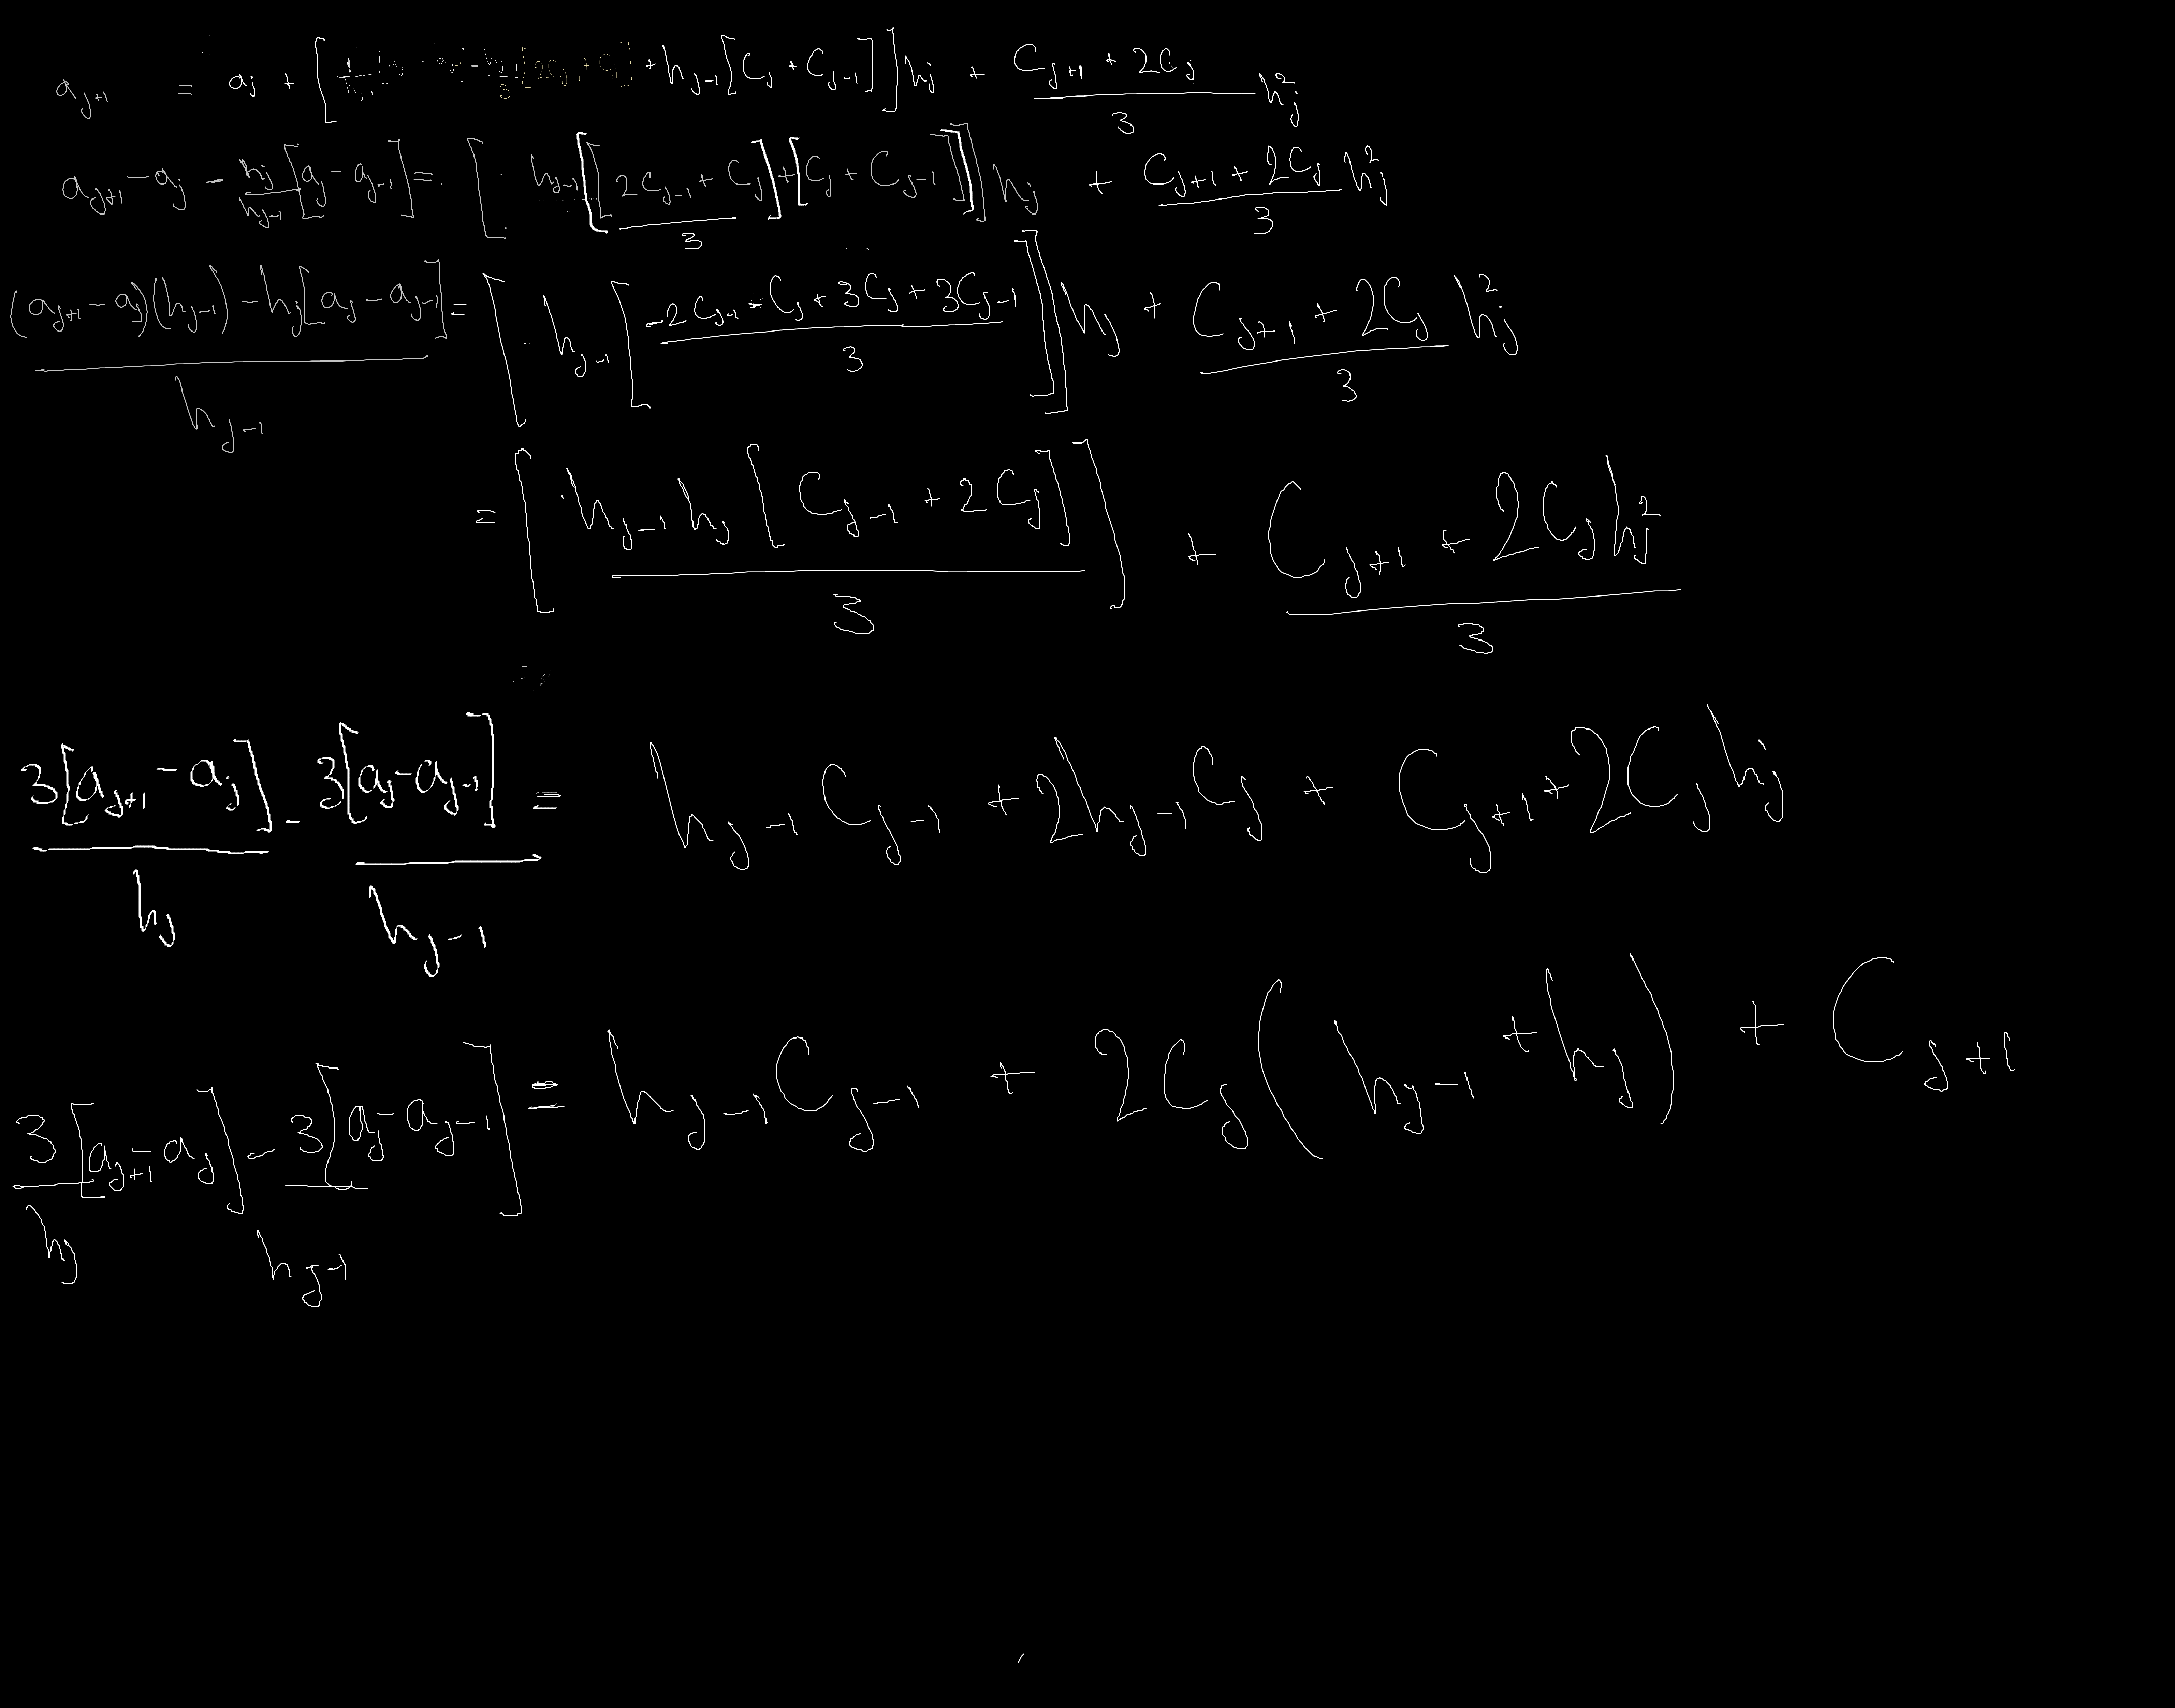 a_{j+1} = a_j + [ \frac{1}{h_{j-1}} [a_j - a_{j-1}] - \frac{h_{j-1}}{3} [2C_{j-1} + C_j] + h_{j-1} [C_j + C_{j-1}] ] h_j + \frac{C_{j+1} + 2C_j}{3} h_j^2
a_{j+1} - a_j - \frac{h_j}{h_{j-1}} [a_j - a_{j-1}] = [ h_{j-1} [ \frac{[2C_{j-1} + C_j]}{3} + [C_j + C_{j-1}] ] ] h_j + \frac{C_{j+1} + 2C_j}{3} h_j^2
\frac{(a_{j+1} - a_j)(h_{j-1}) - h_j [a_j - a_{j-1}]}{h_{j-1}} = [ h_{j-1} [ \frac{-2C_{j-1} - C_j + 3C_j + 3C_{j-1}}{3} ] ] h_j + \frac{C_{j+1} + 2C_j}{3} h_j^2
= [ \frac{h_{j-1} h_j [C_{j-1} + 2C_j]}{3} ] + \frac{C_{j+1} + 2C_j h_j^2}{3}
\frac{3[a_{j+1} - a_j]}{h_j} - \frac{3[a_j - a_{j-1}]}{h_{j-1}} = h_{j-1} C_{j-1} + 2h_{j-1} C_j + C_{j+1} + 2C_j h_j
\frac{3}{h_j} [a_{j+1} - a_j] - \frac{3}{h_{j-1}} [a_j - a_{j-1}] = h_{j-1} C_{j-1} + 2C_j (h_{j-1} + h_j) + C_{j+1}